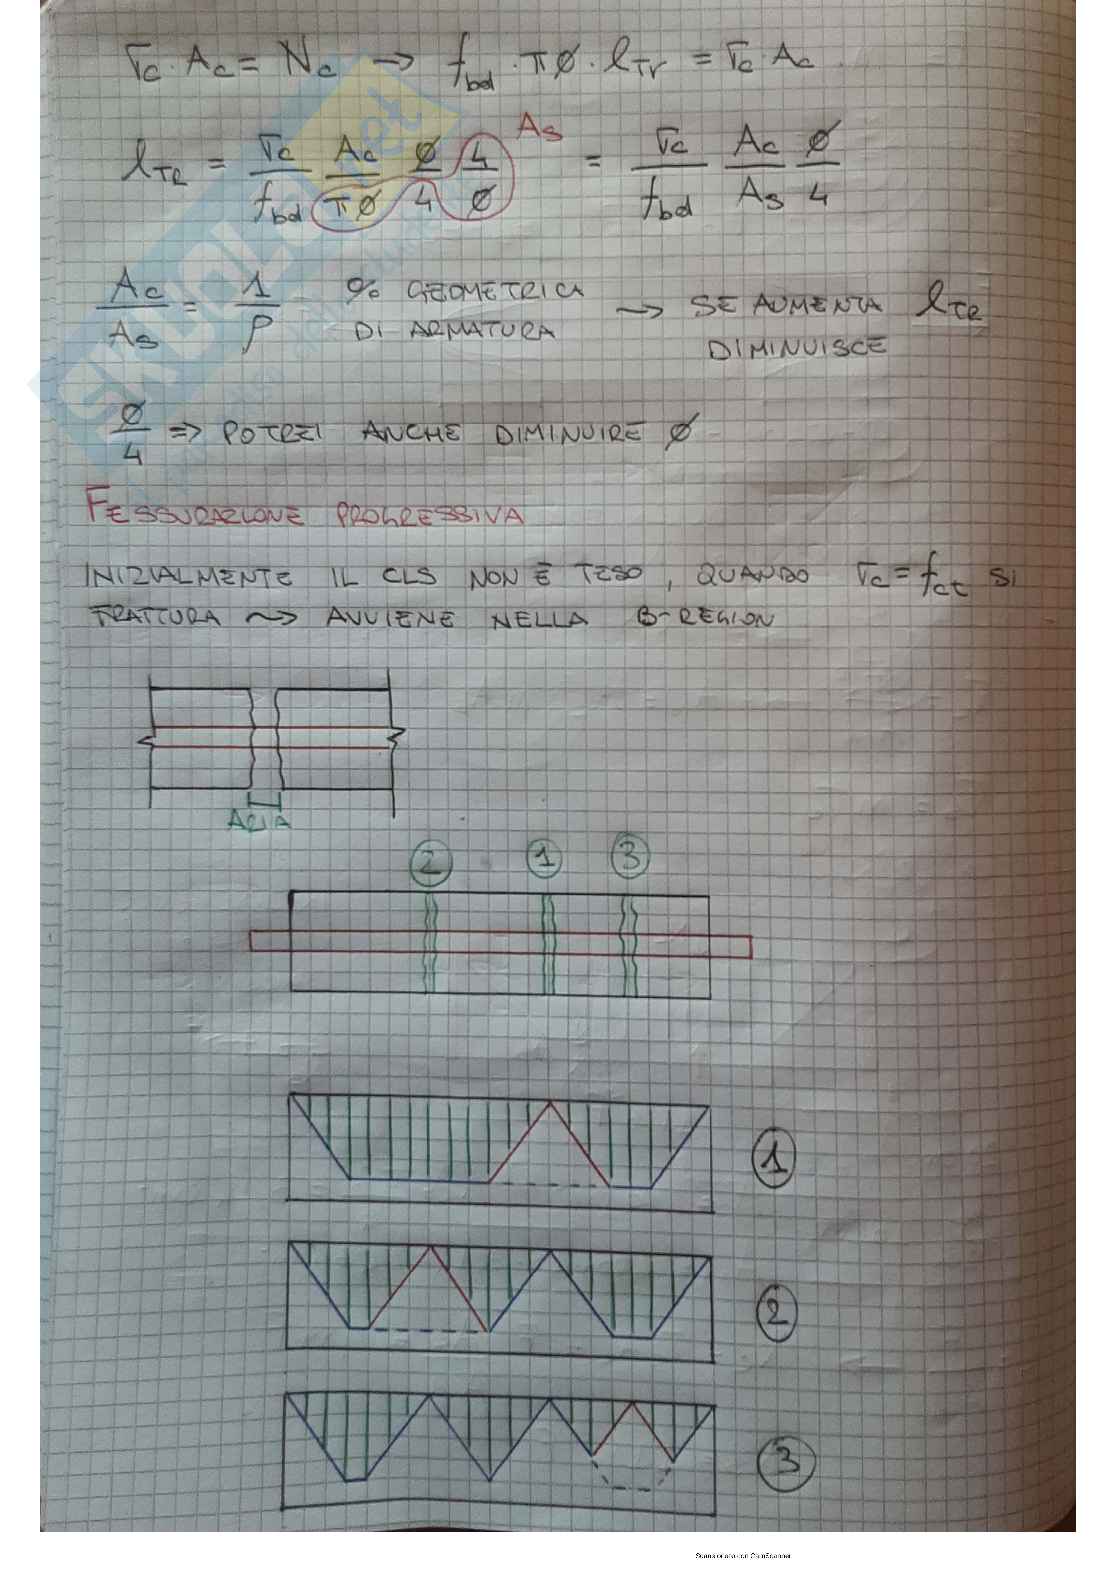 σc · Ac = Nc → fbd · π ø · lTr = σc · Ac
lTR = σc/fbd Ac/πø ø/4 4/ø = σc/fbd Ac/As ø/4
As
Ac/As = 1/ρ % GEOMETRICA DI ARMATURA → SE AUMENTA lTR DIMINUISCE
ø/4 => POTREI ANCHE DIMINUIRE ø
FESSURAZIONE PROGRESSIVA
INIZIALMENTE IL CLS NON È TESO, QUANDO σc = fct SI
FRATTURA ~> AVVIENE NELLA B-REGION
ARIA
2 1 3
1
2
3
SKUOLA.net